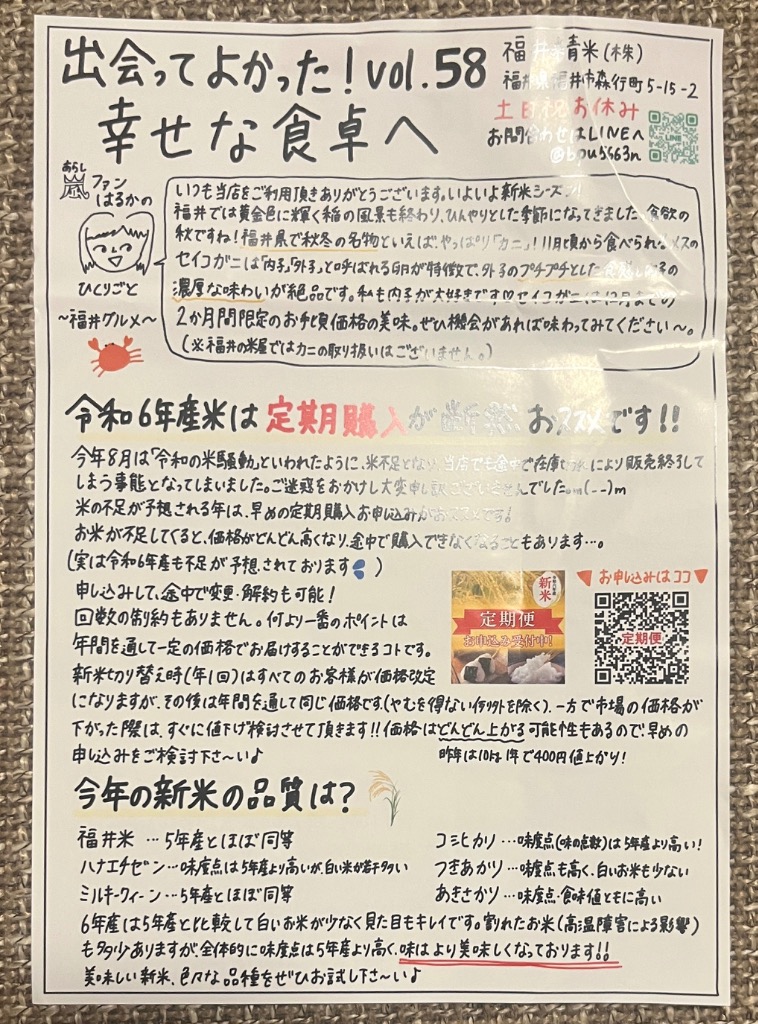 出会ってよかった！vol.58
幸せな食卓へ
福井精米(株)
福井県福井市森行町5-15-2
土日祝お休み
お問合わせはLINEへ
LINE
あらし
嵐ファン
はるかの
ひとりごと
〜福井グルメ〜
いつも当店をご利用頂きありがとうございます。いよいよ新米シーズン！
福井では黄金色に輝く稲の風景も終わり、ひんやりとした季節になってきました。食欲の
秋ですね！福井県で秋冬の名物といえば、やっぱり「カニ」！11月頃から食べられるメスの
セイコガニは「内子」「外子」と呼ばれる卵が特徴で、外子のプチプチとした食感と内子の
濃厚な味わいが絶品です。私も内子が大好きです♡セイコガニは12月までの
2か月間限定のお手頃価格の美味。ぜひ機会があれば味わってみてください〜。
(※福井の米屋ではカニの取り扱いはございません。)
令和6年産米は定期購入が断然おススメです!!
今年8月は「令和の米騒動」といわれたように、米不足となり、当店でも途中で在庫切れにより販売終了して
しまう事態となってしまいました。ご迷惑をおかけし大変申し訳ございませんでした。m(--)m
米の不足が予想される年は、早めの定期購入お申し込みがおススメです！
お米が不足してくると、価格がどんどん高くなり、途中で購入できなくなることもあります…。
(実は令和6年産も不足が予想されております)
申し込みして、途中で変更・解約も可能！
回数の制約もありません。何より一番のポイントは
年間を通して一定の価格でお届けすることができるコトです。
新米切り替え時(年1回)はすべてのお客様が価格改定
になりますが、その後は年間を通して同じ価格です。(やむを得ない例外を除く)、一方で市場の価格が
下がった際は、すぐに値下げ検討させて頂きます!!価格はどんどん上がる可能性もあるので、早めの
申し込みをご検討下さ〜い♪
新米
定期便
お申込み受付中!
▼お申し込みはココ▼
定期便
昨年は10kg 1年で400円値上がり！
今年の新米の品質は？
福井米…5年産とほぼ同等
ハナエチゼン…味度点は5年産より高いが、白い米が若干多い
ミルキークィーン…5年産とほぼ同等
コシヒカリ…味度点(味の点数)は5年産より高い！
つきあかり…味度点も高く、白いお米も少ない
あきさかり…味度点・食味値ともに高い
6年産は5年産と比較して白いお米が少なく見た目もキレイです。割れたお米(高温障害による影響)
も多少ありますが、全体的に味度点は5年産より高く、味はより美味しくなっております!!
美味しい新米、色々な品種をぜひお試し下さ〜い♪